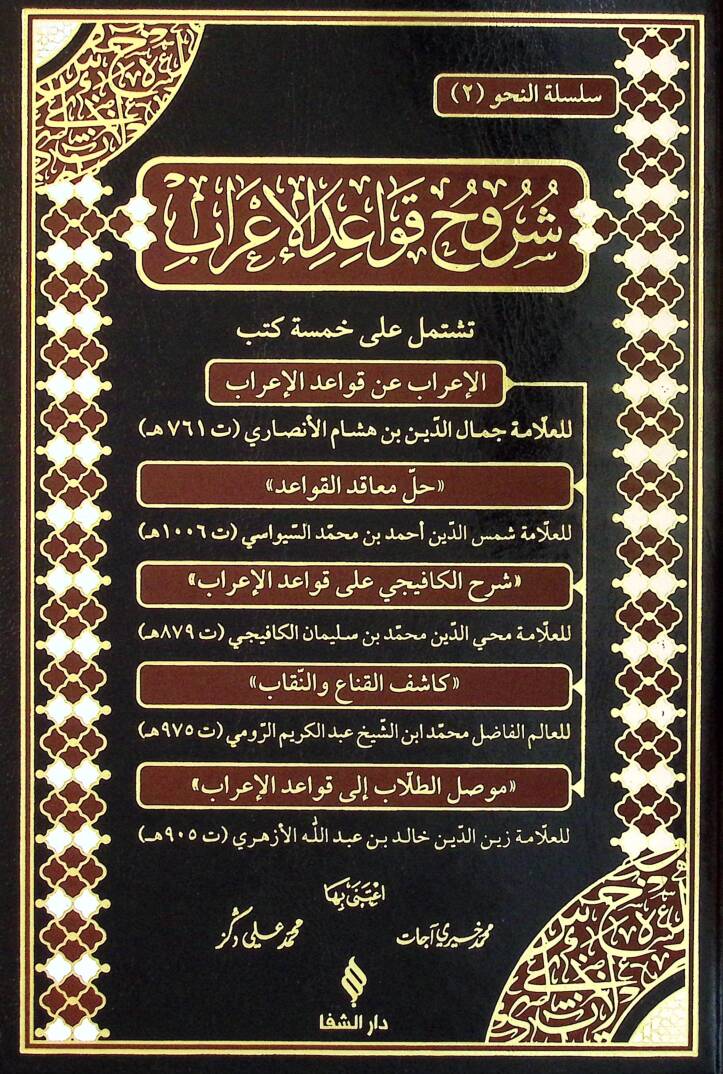 سلسلة النحو (٢)
شُرُوحُ قَوَاعِدِ الْإِعْرَابِ
تشتمل على خمسة كتب
الإعراب عن قواعد الإعراب
للعلّامة جمال الدّين بن هشام الأنصاري (ت ٧٦١هـ)
«حلّ معاقد القواعد»
للعلّامة شمس الدّين أحمد بن محمّد السّيواسي (ت ١٠٠٦هـ)
«شرح الكافيجي على قواعد الإعراب»
للعلّامة محي الدّين محمّد بن سليمان الكافيجي (ت ٨٧٩هـ)
«كاشف القناع والنّقاب»
للعالم الفاضل محمّد ابن الشّيخ عبد الكريم الرّومي (ت ٩٧٥هـ)
«موصل الطلّاب إلى قواعد الإعراب»
للعلّامة زين الدّين خالد بن عبد اللّٰه الأزهري (ت ٩٠٥هـ)
اعْتَنَى بِهَا
محمد خيري آجات
محمد علي دكز
دار الشفا